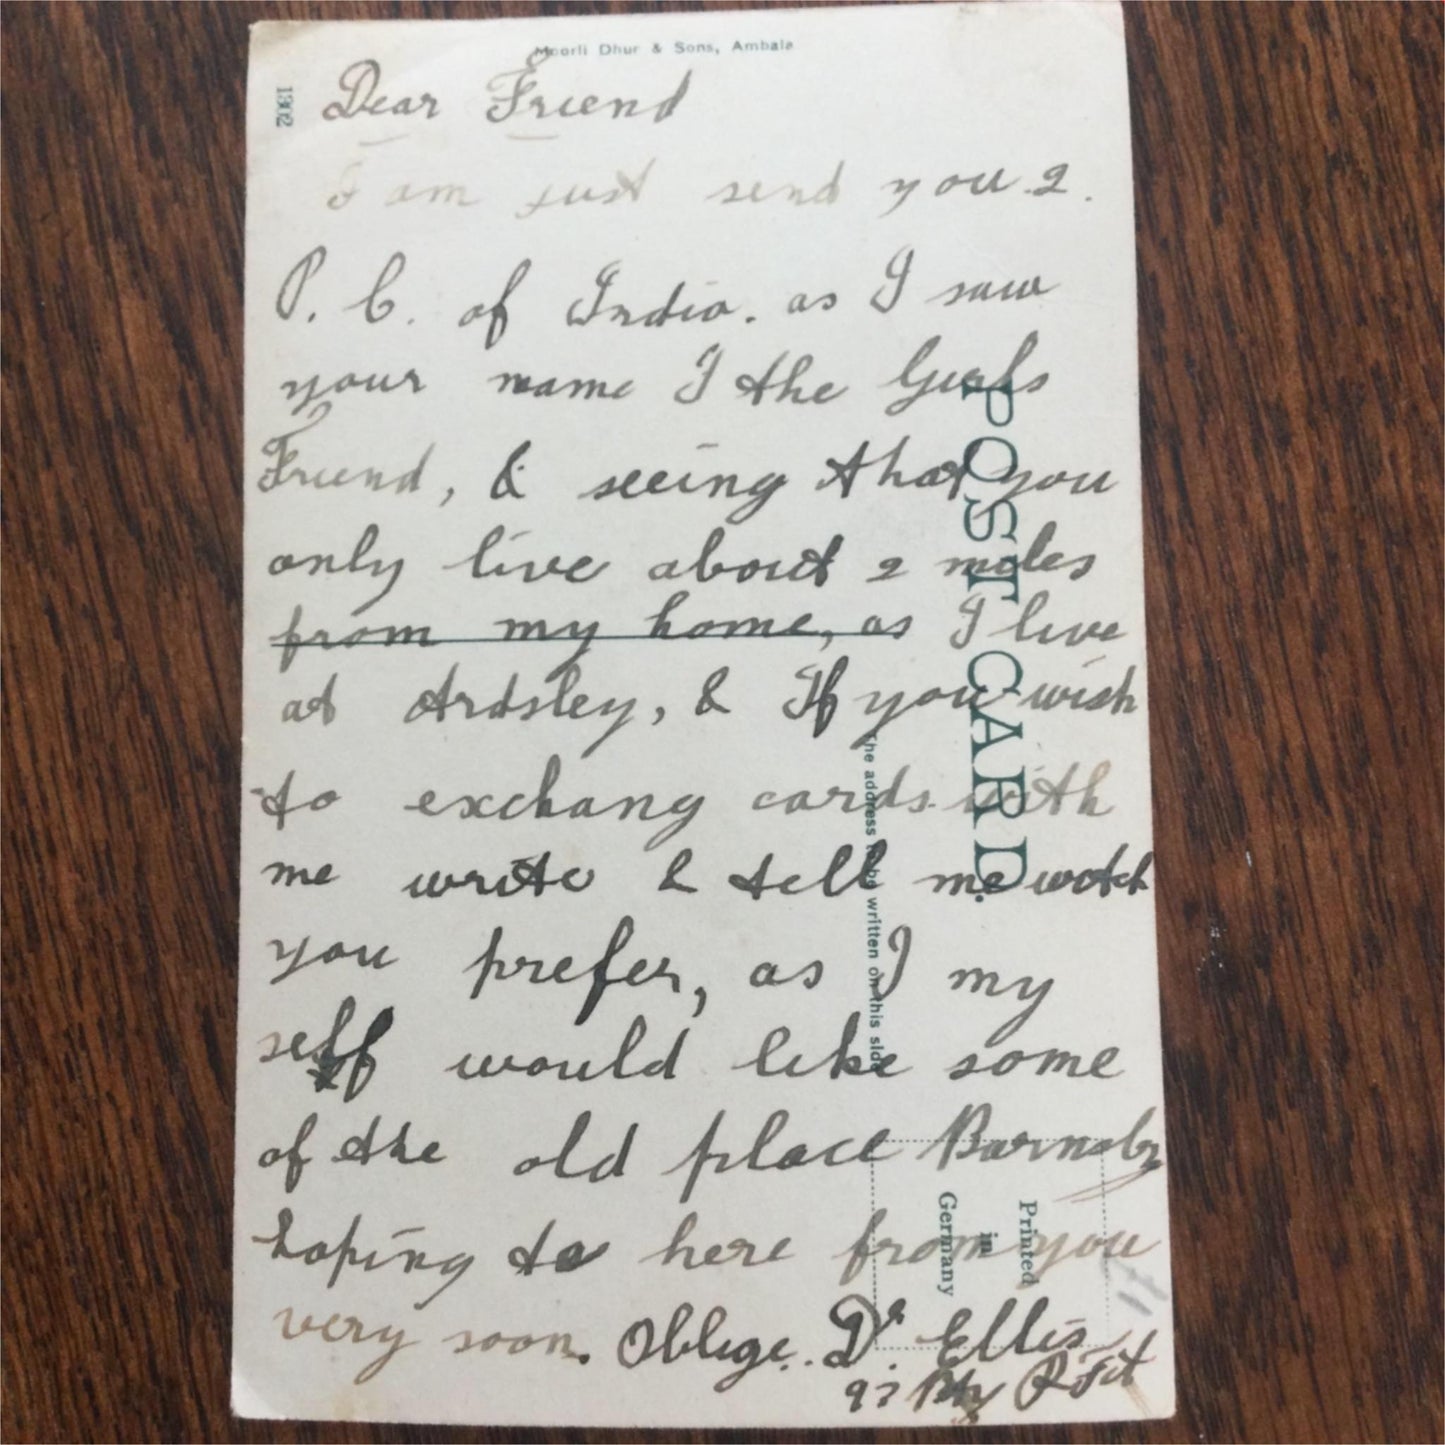 Moorli Dhur & Sons, Ambala
1302
Dear Friend
I am just send you 2.
P. C. of India. as I saw
your name I the Girls
Friend, & seeing that you
only live about 2 miles
from my home, as I live
at Ardsley, & If you wish
to exchang cards with
me write & tell me wotch
you prefer, as I my
self would like some
of the old place Barnsby
hoping to here from you
very soon. Oblige. Dr. Ellis
POST CARD.
The address to be written on this side
Printed
in
Germany